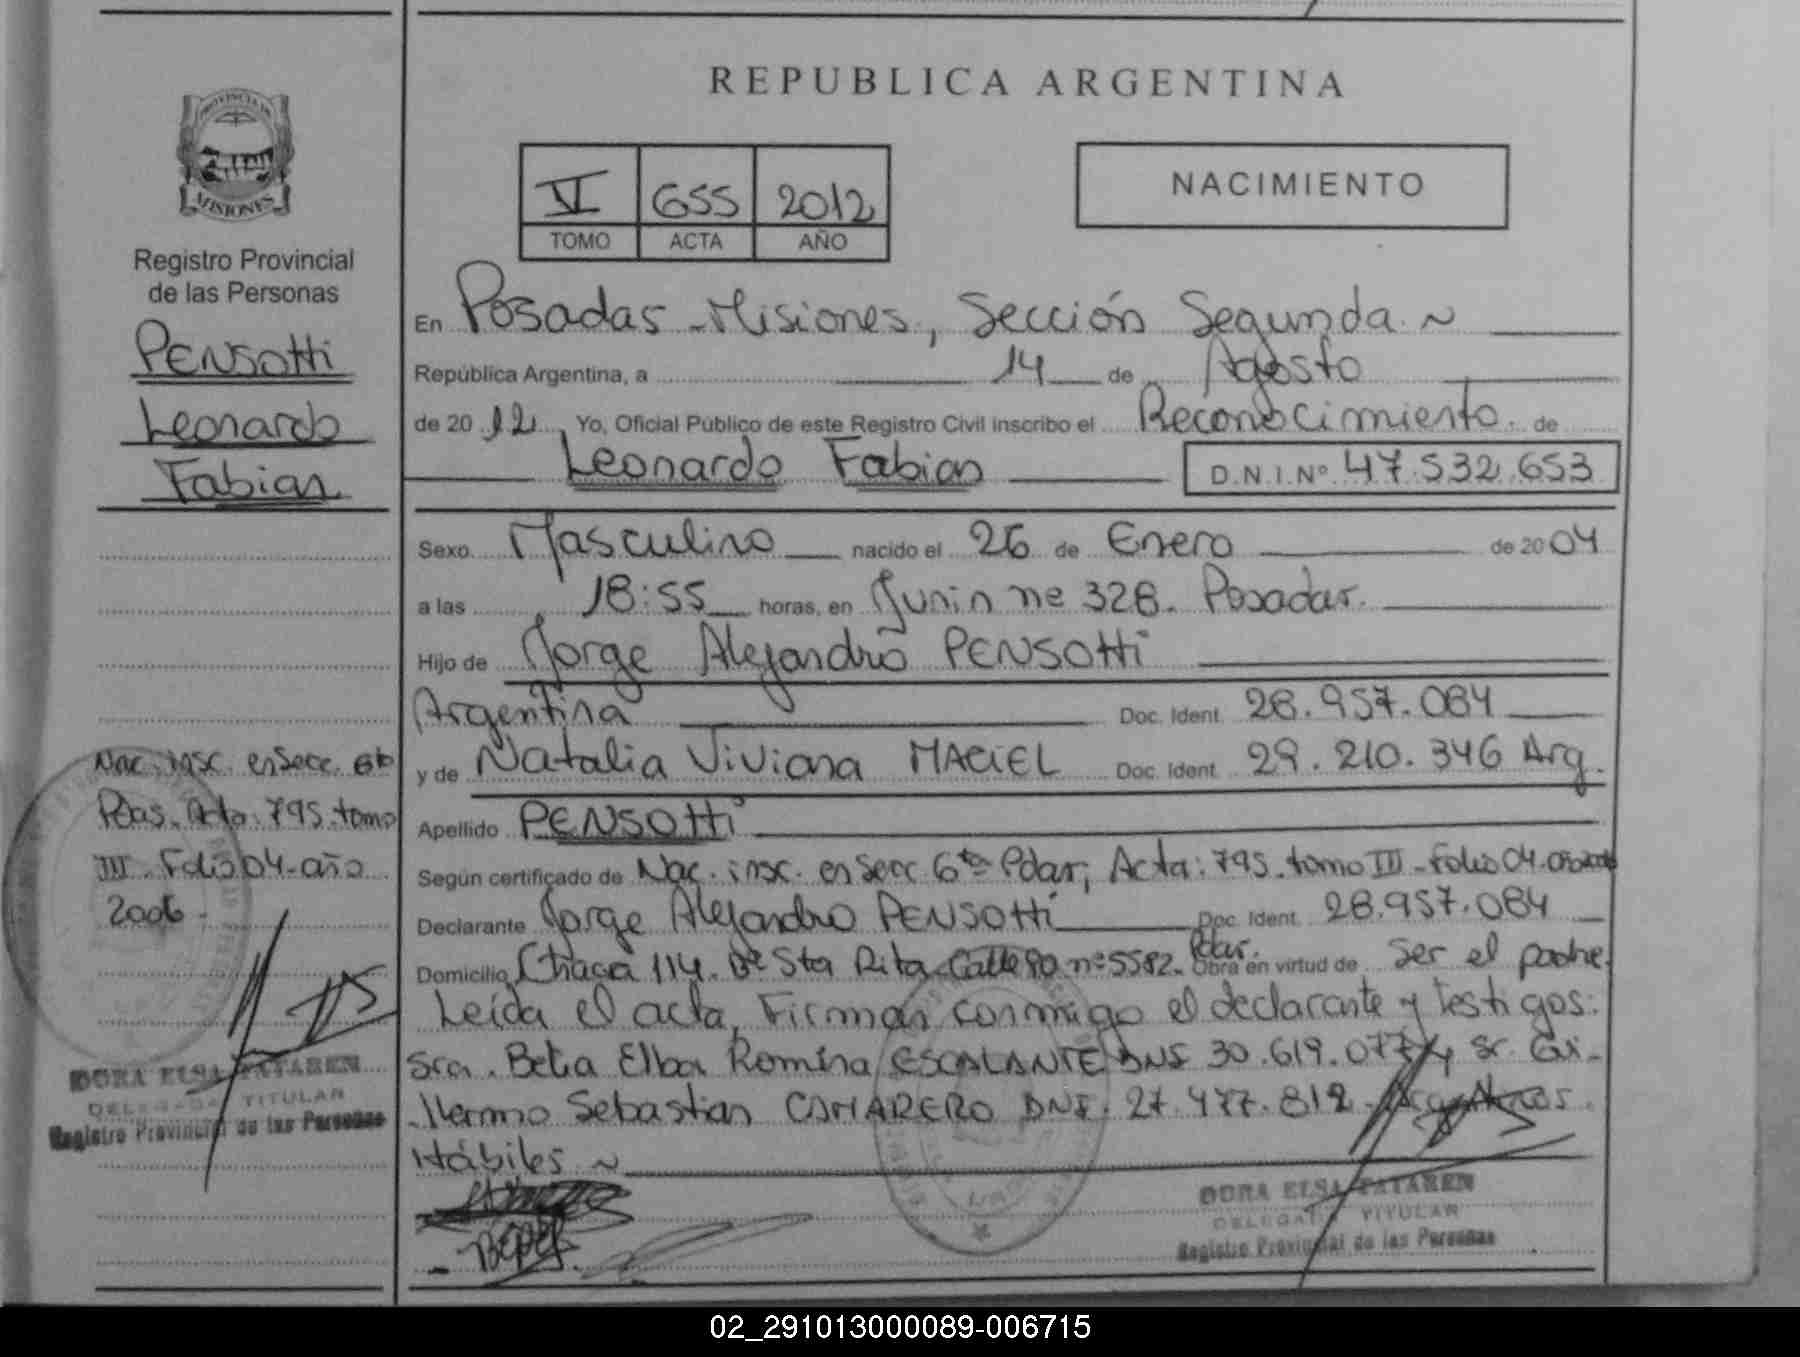 REPUBLICA ARGENTINA
PROVINCIA DE
MISIONES
Registro Provincial
de las Personas
PENSOTTI
Leonardo
Fabian
Nac. insc. en Secc. 6ta
Pdas. Acta: 795. tomo
III - Folio 04 - año
2006 -
DORA ELSA TATAREN
DELEGADA TITULAR
Registro Provincial de las Personas
VI 655 2012
TOMO ACTA AÑO
NACIMIENTO
En Posadas - Misiones, Sección Segunda. ~
República Argentina, a 14 de Agosto
de 2012 Yo, Oficial Público de este Registro Civil inscribo el Reconocimiento de
Leonardo Fabian D.N.I.Nº 47.532.653
Sexo Masculino nacido el 26 de Enero de 2004
a las 18:55 horas, en Junin nº 328. Posadas.
Hijo de Jorge Alejandro PENSOTTI
Argentina Doc. Ident. 28.957.084
y de Natalia Viviana MACIEL Doc. Ident. 29.210.346 Arg.
Apellido PENSOTTI
Según certificado de Nac. insc. en Secc 6ta Pdas, Acta: 795. tomo III - Folio 04. año 2006
Declarante Jorge Alejandro PENSOTTI Doc. Ident. 28.957.084
Domicilio Chacra 114. Bº Sta Rita Calle 90 nº 5582. Pdas. Obra en virtud de ser el padre.
Leída el acta, Firman conmigo el declarante y testigos:
Sra. Belia Elba Romina ESCALANTE DNI 30.619.077 y Sr. Gui-
llermo Sebastian CAMARERO DNI. 27.477.812 - Argentinos.
Hábiles ~
DORA ELSA TATAREN
DELEGADA TITULAR
Registro Provincial de las Personas
02_291013000089-006715